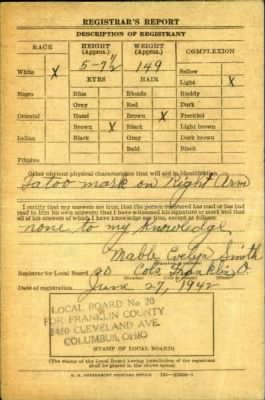 REGISTRAR'S REPORT
DESCRIPTION OF REGISTRANT
RACE HEIGHT (Approx.) WEIGHT (Approx.) COMPLEXION
White X 5-7½ 149 Sallow
EYES HAIR Light X
Negro Blue Blonde Ruddy
Gray Red Dark
Oriental Hazel Brown X Freckled
Brown X Black Light brown
Indian Black Gray Dark brown
Bald Black
Filipino
Other obvious physical characteristics that will aid in identification
Tatoo mark on Right Arm
I certify that my answers are true; that the person registered has read or has had
read to him his own answers; that I have witnessed his signature or mark and that
all of his answers of which I have knowledge are true, except as follows:
none to my knowledge
Mable Evelyn Smith
Registrar for Local Board 20 Cols Franklin O
Date of registration June 27, 1942
LOCAL BOARD No 20
FOR FRANKLIN COUNTY
CLEVELAND AVE.
COLUMBUS, OHIO
(STAMP OF LOCAL BOARD)
(The stamp of the Local Board having jurisdiction of the registrant
shall be placed in the above space)
U. S. GOVERNMENT PRINTING OFFICE